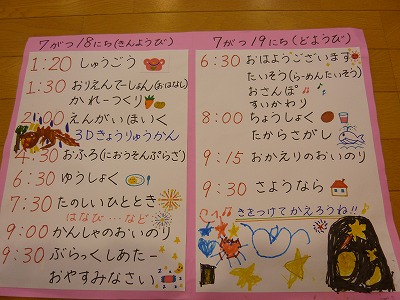 7がつ18にち(きんようび)
1:20 しゅうごう
1:30 おりえんてーしょん(おはなし)
かれーつくり
2:00 えんがいほいく
3Dきょうりゅうかん
4:30 おふろ(におうそんぷらざ)
6:30 ゆうしょく
7:30 たのしいひととき
はなび…など
9:00 かんしゃのおいのり
9:30 ぶらっくしあたー
おやすみなさい
7がつ19にち(どようび)
6:30 おはようございます
たいそう(らーめんたいそう)
おさんぽ
すいかわり
8:00 ちょうしょく
たからさがし
9:15 おかえりのおいのり
9:30 さようなら
きをつけてかえろうね!!